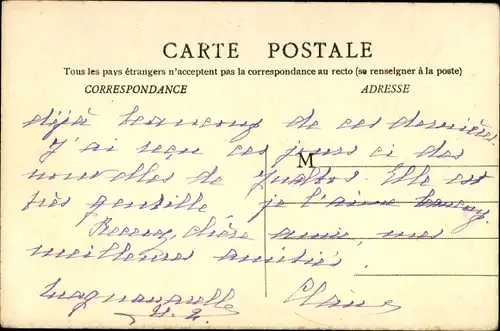 CARTE POSTALE
Tous les pays étrangers n'acceptent pas la correspondance au recto (se renseigner à la poste)
CORRESPONDANCE ADRESSE
déjà beaucoup de ces dernières.
J'ai reçu ces jours ci des
M
nouvelles de Elle est
très gentille je l'aime beaucoup.
Recevez, chère amie, mes
meilleures amitiés